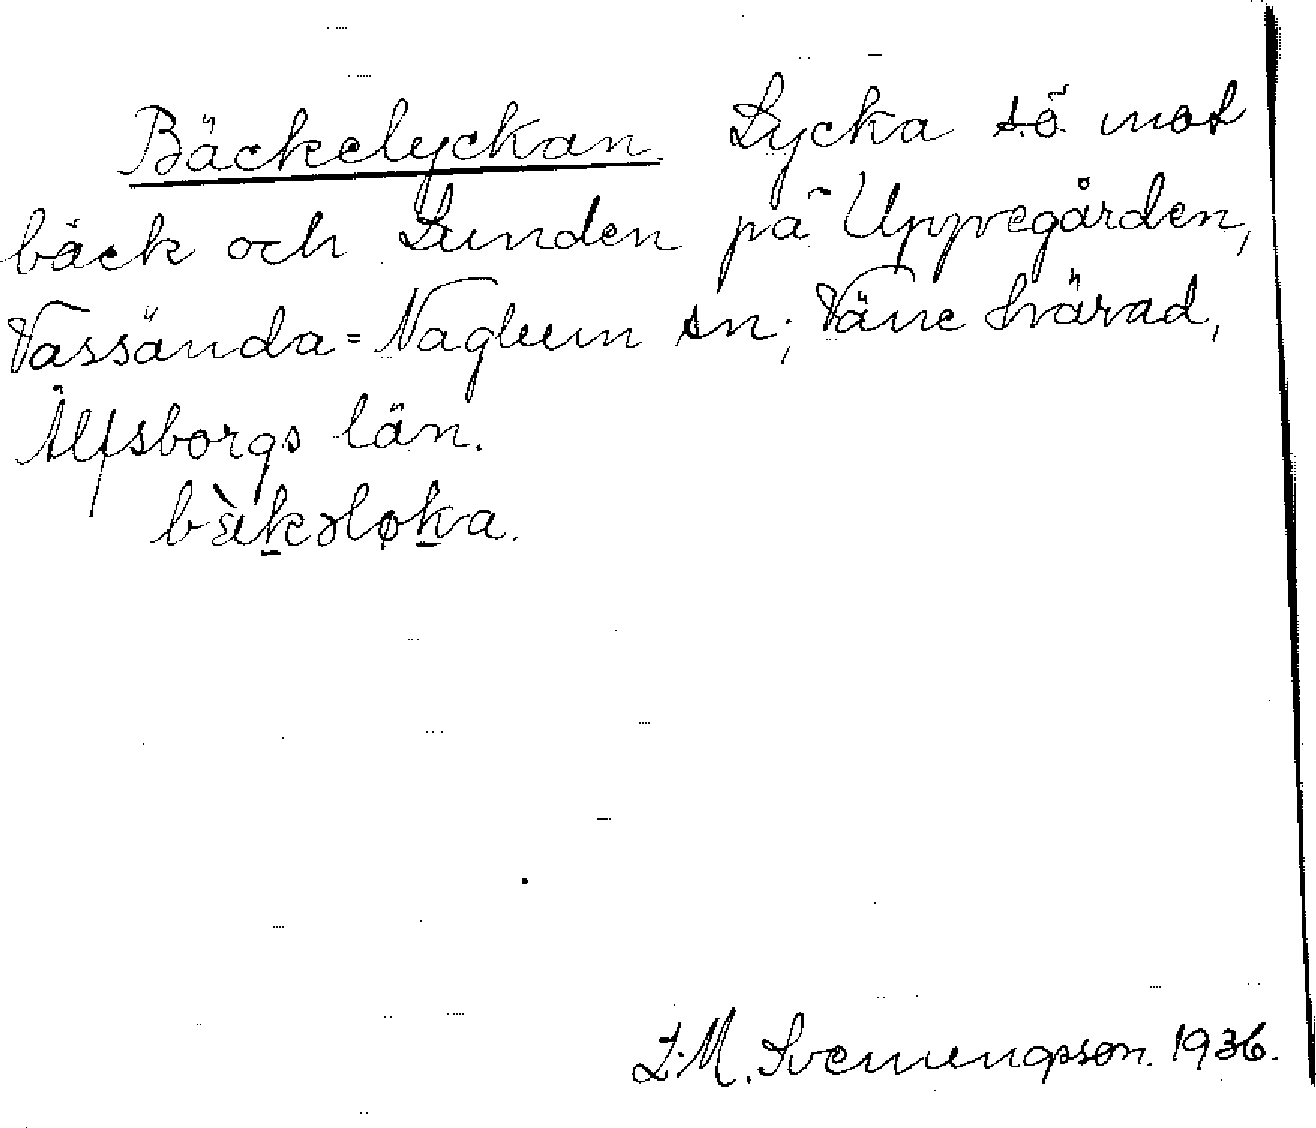 Bäckelyckan. Lycka sö mot
bäck och Lunden på Uppegården,
Vassända=Naglum sn; Väne härad,
Älfsborgs län.
J.M. Svenungsson. 1936.